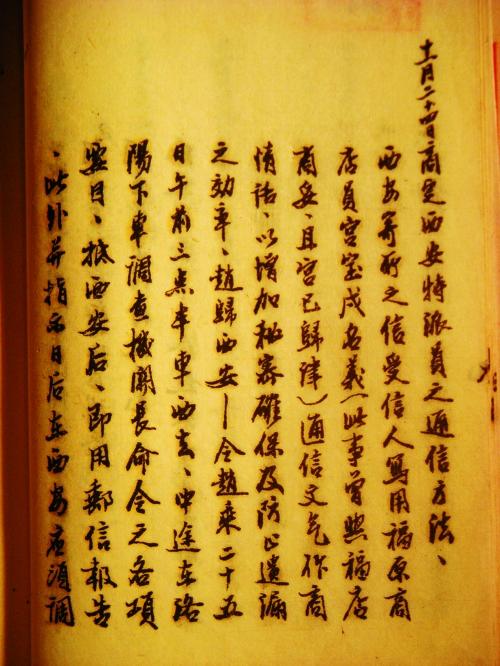 十一月二十四日商定西安特派員之通信方法、
西安寄所之信受信人寫用福原商
店員宮宝成名義（此事曾照福店
商妥、且宮已歸津）通信文气作商
情話、以增加秘密確保及防止遺漏
之効率、趙歸西安—令趙乗二十五
日午前三点半車西去、中途在洛
陽下車調查機關長命令之各項
要目、抵西安后、即用郵信報告
、此外并指示日后在西安應須調